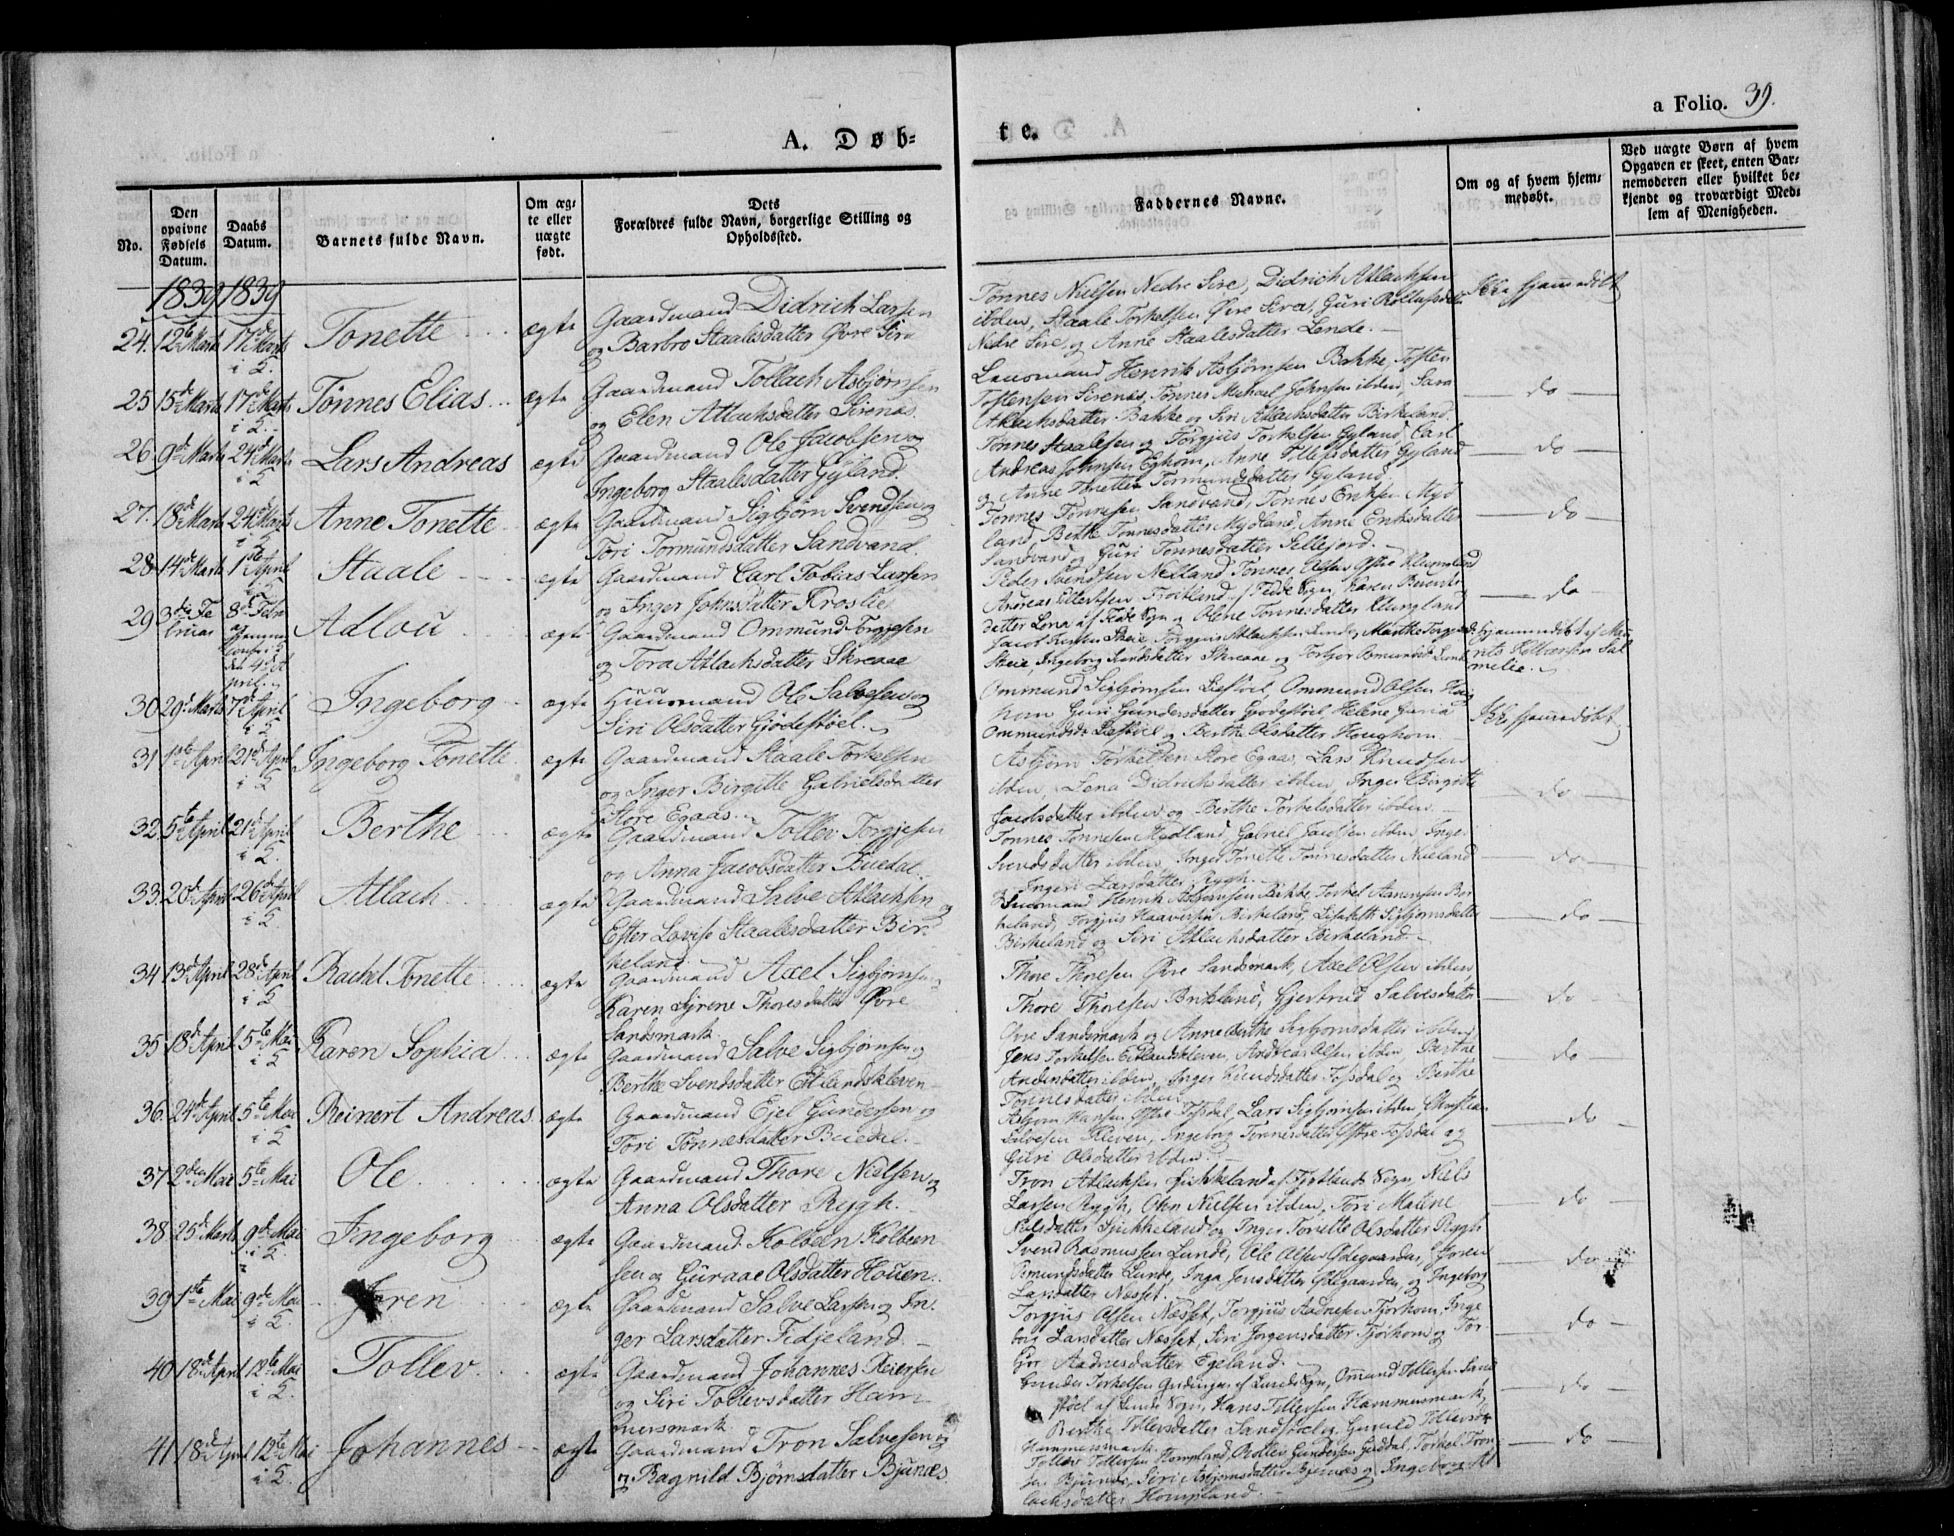 a Folio. 39.
A. Døb-
te.
No.
Den opgivne Fødsels Datum.
Daabs Datum.
Barnets fulde Navn.
Om ægte eller uægte født.
Dets Forældres fulde Navn, borgerlige Stilling og Opholdssted.
Faddernes Navne.
Om og af hvem hjemmedøbt.
Ved uægte Børn af hvem
Opgaven er skeet, enten Bar-
nemoderen eller hvilket be-
kjendt og troværdigt Med-
lem af Menigheden.
1839 1839
24. 12te Marts 17de Marts i K. Tonette ægte Gaardmand Didrich Larsen
og Barbro Staalesdatter Øvre Sire
Tønnes Nielsen Nedre Sire, Didrich Atlachsen
ibden, Staale Torkelsen Øvre Sire, Guri
Nedre Sire, og Anne Staalesdatter Lende.
Ikke hjemmedøbt
25 15de Marts 17de Marts i K. Tønnes Elias ægte Gaardmand Tollach Asbjørnsen
og Elen Atlachsdatter Sirenæs.
Lensmand Henrik Asbjørnsen Bakke, Tosten
Tostensen Sirenæs, Tønnes Michael Johnsen ibden, Sara
Atlachsdatter Bakke og Siri Atlachsdatter Birkeland.
do
26. 9de Marts 24de Marts i K. Lars Andreas ægte Gaardmand Ole Jacobsen og
Ingeborg Staalesdatter Gyland.
Tønnes Staalesen og Torgjus Torkelsen Gyland, Carl
Andreas Johnsen Eghom, Anne Gyland
og Anne Tonette Tormundsdatter Gyland.
do
27. 18de Marts 24de Marts i K. Anne Tonette ægte Gaardmand Sigbjørn Svendsen og
Tori Tormundsdatter Sandvand.
Tønnes Tønnesen Sandvand, Tønnes Eriksen Myd
land, Berthe Tønnesdatter Mydland, Anne Eriksdatter
Sandvand og Guri Tønnesdatter Sellejord.
do
28. 14de Marts 1ste April Staale ægte Gaardmand Carl Tobias Larsen
og Inger Johnsdatter Kroslie
Peder Svendsen Netland, Tønnes Olsen Øftre
Andreas Fede Sogn, Karen
datter Lena af Fede Sogn og Olene Tønnesdatter
do
29 3die Februar 8de Febr. Adlou ægte Gaardmand Ommund Torgjesen
og Tora Atlachsdatter Skreaae
Skeie, Ingeborg Skreaae og
hjemmedøbt af
30 29de Marts 7de April i K. Ingeborg ægte Huusmand Ole Salvesen og
Siri Olsdatter Gjødestøel.
Ommund Sigbjørnsen Liestøel, Ommund Olsen Houg
hom, Guri Gundersdatter Gjødestøel, Helene Maria
Ommundsd. Liestøel og Berthe Olsdatter Houghom.
Ikke hjemmedøbt
31 1ste April 21de April i K. Ingeborg Tonette ægte Gaardmand Staale Torkelsen
og Inger Birgitte Gabrielsdatter
Store Egaas.
Asbjørn Torkelsen Store Egaas, Lars Knudsen
ibden, Lena Didrichsdatter ibden, Inger Birgitte
Jacobsdatter ibden og Berthe Torkelsdatter ibden.
do
32 5te April 21de April i K. Berthe ægte Gaardmand Tollev Torgjesen
og Anna Jacobsdatter Buedal.
Tønnes Tønnesen Mydland, Gabriel Jacobsen ibden, Inge
Svendsdatter ibden, Inger Tonette Tønnesdatter Nuland
Ingeri Larsdatter Rygh.
do
33. 20de April 26de April i K. Atlach ægte Gaardmand Salve Atlachsen og
Ester Lovise Staalesdatter Bir-
keland.
Lensmand Henrik Asbjørnsen Bakke, Torkel Bir
keland, Torgjus Haaversen Birkeland, Lisebeth Sigbjørnsdatter
Birkeland og Siri Atlachsdatter Birkeland.
do
34 13de April 28de April i K. Rachel Tonette ægte Gaardmand Axel Sigbjørnsen
Karen Syrene Thoresdatter Øvre
Landsmark.
Thore Thoresen Øvre Landsmark, Axel Olsen ibden,
Thore Thoresen Birkeland, Gjertrud Salvesdatter
Øvre Landsmark og Anne Berthe Sigbjørnsdatter ibden
do
35 18de April 5te Mai i K. Karen Sophia ægte Gaardmand Salve Sigbjørnsen og
Berthe Svendsdatter Etlandskleven
Jens Torkelsen Etlandskleven, Andreas Olsen ibden, Berthe
Andersdatter ibden, Inger Knudsdatter Fossdal og Berthe
Tønnesdatter ibden.
do
36. 24de April 5te Mai i K. Reinert Andreas ægte Gaardmand Ejel Gundersen og
Tori Tønnesdatter Buedal.
Asbjørn Hansen Øftre Fossdal, Lars Sigbjørnsen ibden, Christian
Salvesen Kleven, Ingeborg Tønnesdatter Øftre Fossdal og
Guri Olsdatter ibden.
do
37 2den Mai 5te Mai Ole ægte Gaardmand Thore Nielsen og
Anna Olsdatter Rygh.
Tron Atlachsen Sikkeland af Fjotlands Sogn, Niels
Larsen Rygh, Ohn Nielsen ibden, Tori Malene
Nielsdatter Sikkeland og Inger Tonette Olsdatter Rygh
do
38 25de Marts 9de Mai i K. Ingeborg ægte Gaardmand Kolbeen Kolbeen-
sen og Guraae Olsdatter Houen.
Svend Rasmussen Lunde, Ole Olsen Ødegaarden, Joren
Osmundsdatter Lunde, Inga Jensdatter Ødegaarden, og Ingeborg
Larsdatter Næsset.
do
39 1ste Mai 9de Mai i K. Joren ægte Gaardmand Salve Larsen og In-
ger Larsdatter Fidjeland.
Torgjus Olsen Næsset, Torgjus Aadnesen Tjørhom, Inge
borg Larsdatter Næsset, Siri Jørgensdatter Tjørhom og Tor
Gor Aadnesdatter Egeland.
do
40 18de April 12te Mai i K. Tollev ægte Gaardmand Johannes Reiersen
og Siri Tollevsdatter Ham
mersmark
Gunder Torkelsen af Lunde Sogn, Omund Tollevsen Sand
støel af Lunde Sogn, Hans Tollevsen Hammersmark,
Berthe Tollevsdatter Sandstøel og Gunild Tollevsdr
Hammersmark.
do
41 18de April 12te Mai i K. Johannes ægte Gaardmand Tron Salvesen og
og Ragnild Bjørnsdatter Bjunes
Tollev Tollevsen Hompland, Rollev Gundersen Guddal, Torkel Tron
sen Bjunes, Siri Asbjørnsdatter Bjunes og Ingeborg At
lachsdatter Hompland.
do